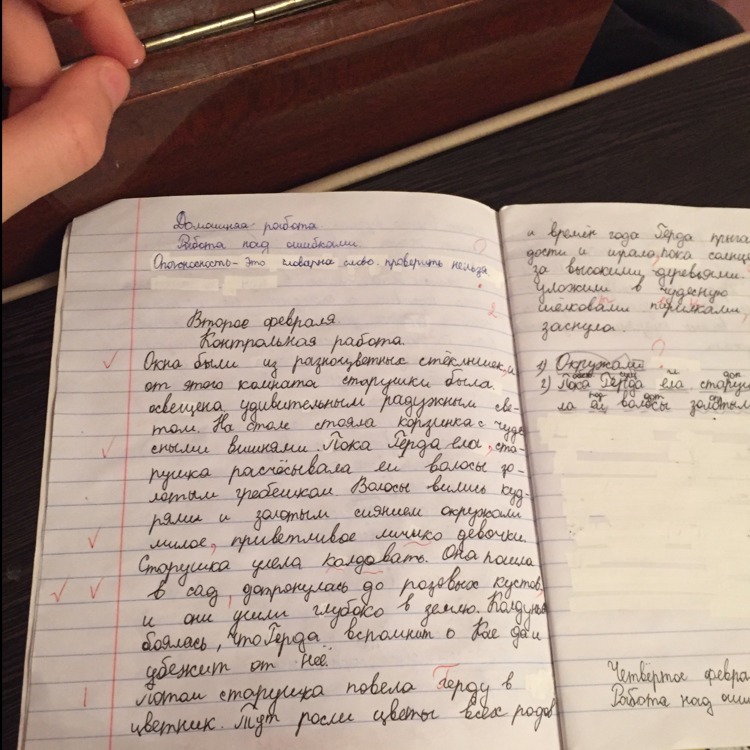 Домашняя работа
Работа над ошибками
это словарна слово проверить нельзя.
Второе февраля.
Контрольная работа.
Окна были из разноцветных стёклышек, и
от этого комната старушки была
освещена удивительным радужным све-
том. На столе стояла корзинка с чуде
сными вишнями. Пока Герда ела, ста-
рушка расчёсывала ей волосы зо-
лотым гребешком. Волосы вились куд-
рями и золотым сиянием окружали
милое, приветливое личико девочки.
Старушка умела колдовать. Она пошла
в сад, дотронулась до розовых кустов,
и они ушли глубоко в землю. Колдунья
боялась, что Герда вспомнит о Кае да и
убежит от неё.
Потом старушка повела Герду в
цветник. Тут росли цветы всех родов
и времён года Герда прыга
дости и играла, пока солнце
за высокими деревьями.
уложили в чудесную
шёлковами перинками,
заснула.
1) Окружали
2) Пока Герда ела стару
ла ей волосы золотым
Четвёртое февра
Работа над оши